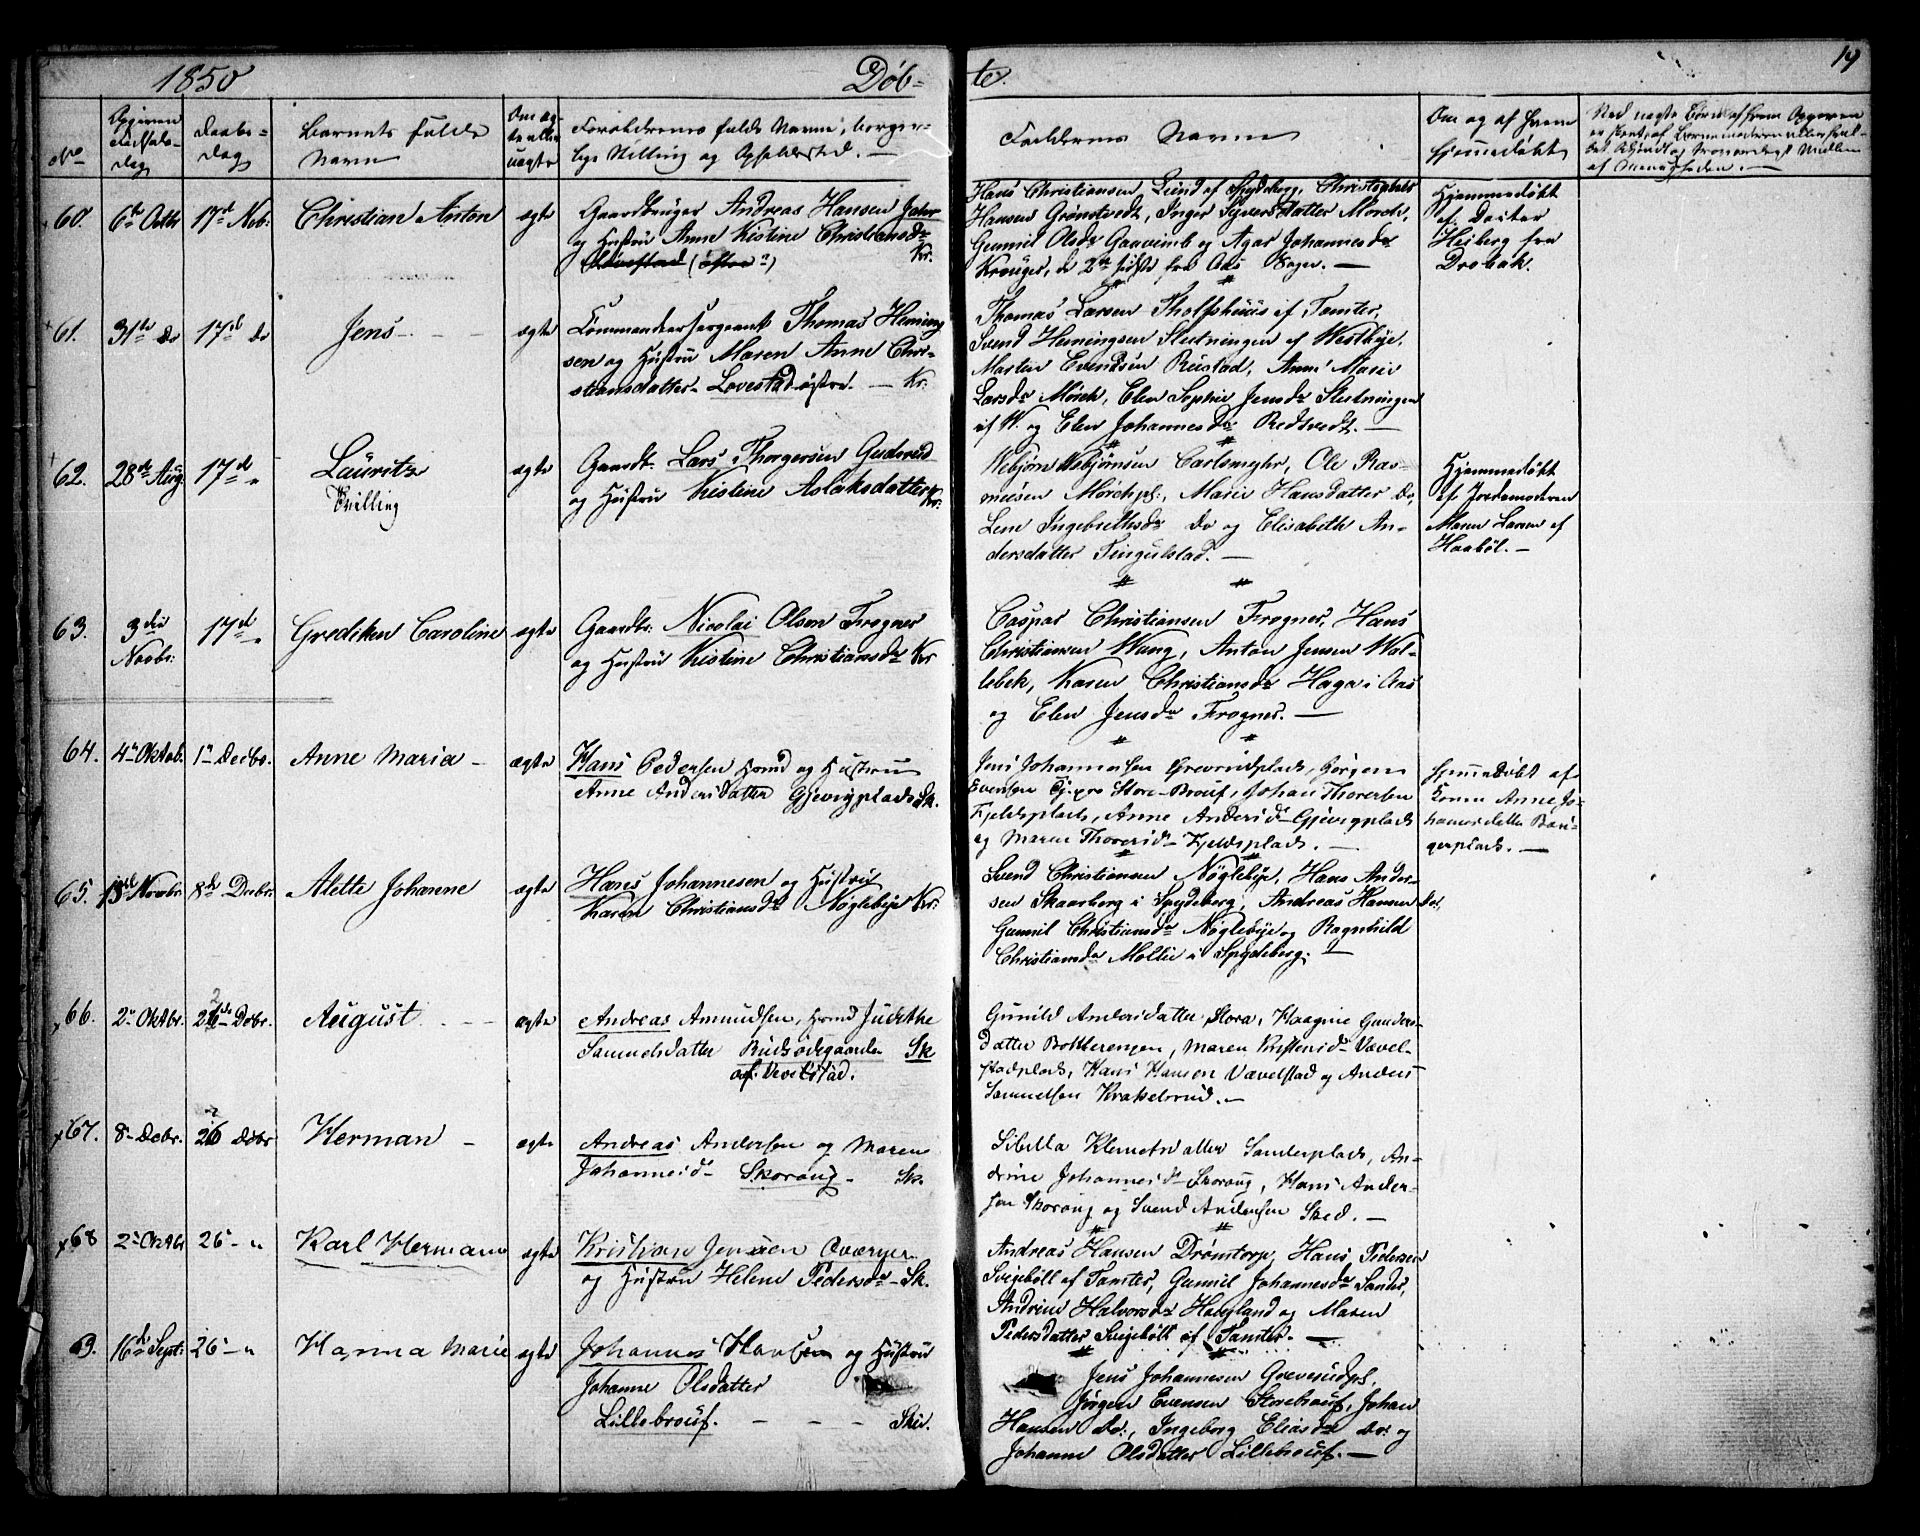 1850 Døb- te. 19
No
Opgiven Fødsels-dag
Daabs-dag
Barnets fulde Navn
Om ægte eller uægte
Forældrenes fulde Navne, borgerlige Stilling og Opholdssted. —
Faddernes Navne
Om og af hvem hjemmedøbt
60. 6te Octbr 17de Nvbr: Christian Anton ægte
Gaardbruger Andreas Hansen
og Hustru Anne Kistine Christiansdr
Kr.
Hans Christiansen, Lund af Spydeberg, Christopher
Hansen Grønstvedt, Inger Syversdatter Morch,
Gunnil Olsdr og Agar Johannesdr
Krouger, de 2de sidste fra Aas Sogn. —
Hjemmedøbt
af Doctor
Heiberg fra
Drøbak.
61. 31te do 17de do Jens - - - ægte
Commandeersergeant Thomas Heming
sen og Hustru Maren Anne Chri-
stiansdatter Lovestad østre. — Kr.
Thomas Larsen Tholfshuus af Tomter,
Svend Hemingsen Slutningen af Westbye,
Marten Evendsen Rustad, Anne Marie
Larsdr Morch, Elen Sophie Jensdr Slutningen
af W. og Elen Johannesdr Rødsvedt. —
62. 28de Aug 17de " Lauritz ægte
Tvilling
Gaardb. Lars Thorgersen Guderud
og Hustru Kistine Aslaksdatter Kr.
Webjørn Webjørnsen Carlsmyhr, Ole Ras-
musen Morchpl., Marie Hansdatter do,
Lene Ingebrethsdr do og Elisabeth An-
dersdatter Tingulstad. —
Hjemmedøbt
af Jordemoderen
Maren Larsen af
Haabøl. —
63. 3die Novbr: 17de " Grediken Caroline ægte
Gaardbr: Nicolai Olsen Frogner
og Hustru Kistine Christiansdr Kr
Caspar Christiansen Frogner, Hans
Christiansen Wang, Anton Jensen Wol-
lebek, Karen Christiansdr Haga i Aas
og Elen Jensdr Frogner. —
64. 4de Oktob. 1de Decbr. Anne Maria - ægte
Hans Pedersen Hmd og Hustru
Anne Andersdatter Gjevigplads Sk.
Jens Johannesen Grevrudplads, Jørgen
Evensen Store-Brouf, Johan Thoresen
Fjeldsplads, Anne Andersdr Gjevegplads
og Maren Thoresdr Fjeldsplads. —
Hjemmedøbt af
Konen Anne Jo-
hannesdatter
65. 13de Novbr. 8de Decbr. Alette Johanne ægte
Hans Johannesen og Hustru
Karen Christiansdr Nøglebye Kr.
Svend Christiansen Nøglebye, Hans Ander-
sen Skaarberg i Spydeberg, Andreas Hansen do,
Gunnil Christiansdr Nøglebye og Ragnhild
Christiansdr Moltu i Spydeberg. —
66. 2de Oktbr. 26de Debr. August - - - ægte
Andreas Amundsen, Hmd Judithe
Samuelsdatter Rudsødegaarden Sk
af Vevelstad.
Gunild Andersdatter Skora, Haagine Gunders-
datter Botterengen, Maren Kristensdr Vævel-
stadplads, Hans Hansen Vævelstad og Anders
Samuelsen Krakelsrud. —
67. 8de Debr. 26 Debr Herman - ægte
Andreas Andersen og Maren
Johannesdr Skoroug. Sk.
Sibella Klemetsdatter Sanderplads, An-
drine Johannesdr Skoroug, Hans Ander-
sen Skoroug og Svend Andersen Sked. —
68 2de Oktbr 26 - " Karl Herman ægte
Kristian Jensen Oværgen
og Hustru Helene Pedersdr - Sk.
Andreas Hansen Drømtorp, Hans Pedersen
Svigebøll af Tomter, Gunnil Johannesdr Sander,
Andrine Halvorsdr Haugland og Maren
Pedersdatter Svigebøll af Tomter. —
69. 16de Sept. 26 - " Hanna Marie ægte
Johannes Hansen og Hustru
Johanne Olsdatter
Lillebrouf. - - - Skie.
Jens Johannesen Greverudpl.
Jørgen Evensen Storebrouf, Johan
Hansen do:, Ingeborg Eliasdr do: og
Johanne Olsdatter Lillebrouf. —